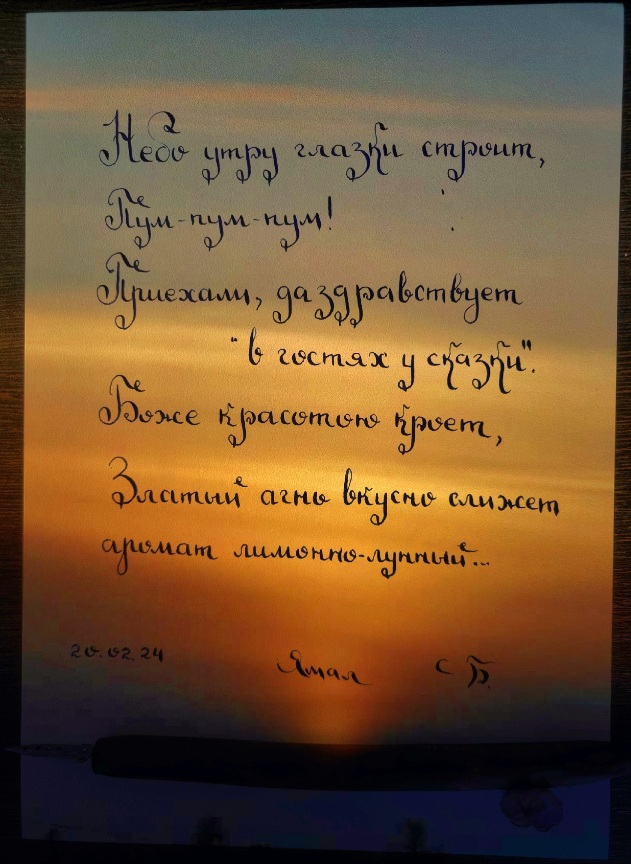 Небо утру глазки строит,
Пум-пум-пум!
Приехали, да здравствует
"в гостях у сказки".
Боже красотою кроет,
Златый агнь вкусно слижет
аромат лимонно-лунный...
20.02.24 Ямал С Б.